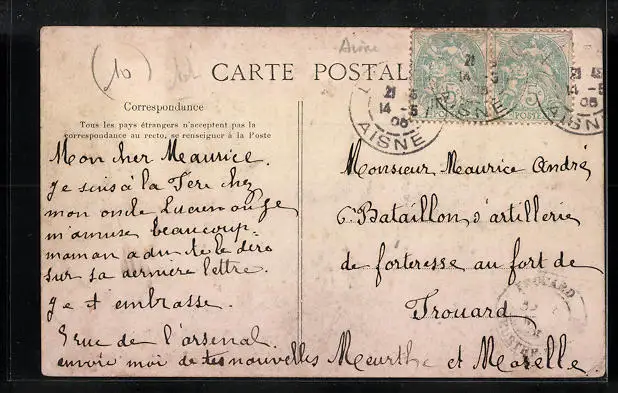 (10)
Aisne
CARTE POSTALE
Correspondance
Tous les pays étrangers n'acceptent pas la
correspondance au recto, se renseigner à la Poste
Mon cher Maurice.
Je suis à la Fère chez
mon oncle Lucien ou je
m'amuse beaucoup
maman a du te le dire
sur sa dernière lettre.
Je t'embrasse.
5 rue de l'arsenal
envoie moi de tes nouvelles
Monsieur Maurice André
6e Bataillon d'artillerie
de forteresse au fort de
Frouard
Meurthe et Moselle
POSTES
21
14 -5
06
AISNE
21
14 -5
06
AISNE
14 -5
AISNE
FROUARD